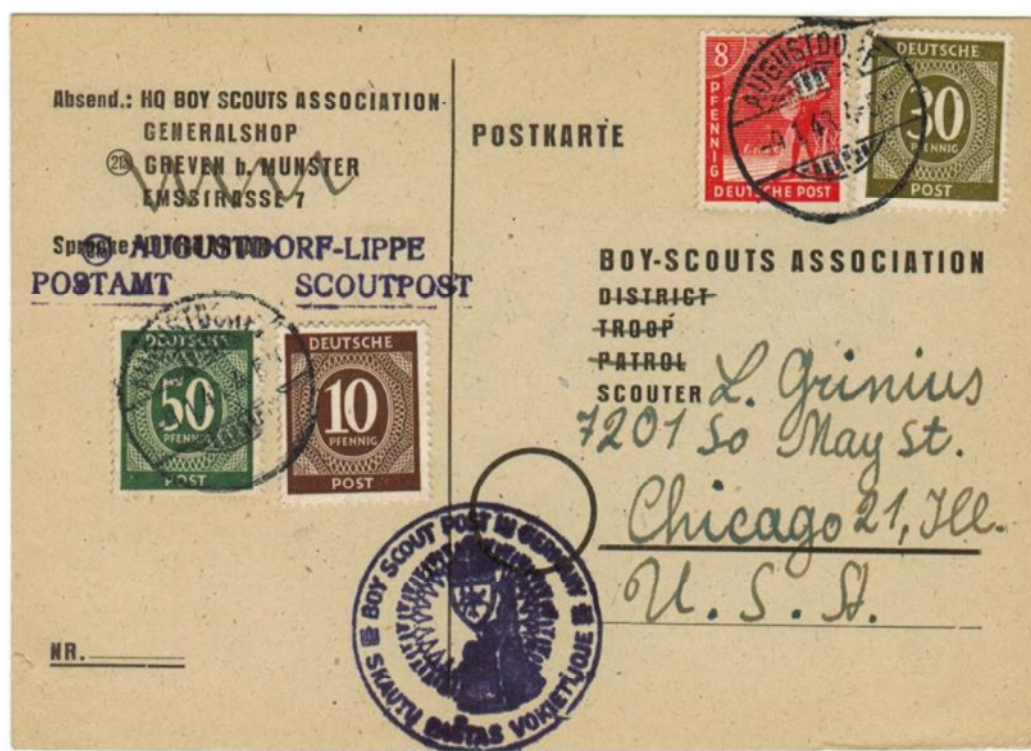 Absend.: HQ BOY SCOUTS ASSOCIATION
GENERALSHOP
(21a) GREVEN b. MUNSTER
EMSSTRASSE 7
Sprache:
AUGUSTDORF-LIPPE
POSTAMT SCOUTPOST
DEUTSCHE
50
PFENNIG
POST
DEUTSCHE
10
PFENNIG
POST
NR.
POSTKARTE
8
PFENNIG
DEUTSCHE POST
DEUTSCHE
30
PFENNIG
POST
AUGUSTDORF
BOY-SCOUTS ASSOCIATION
DISTRICT
TROOP
PATROL
SCOUTER L. Grinius
7201 So May St.
Chicago 21, Ill.
U. S. A.
BOY SCOUT POST IN GERMANY
SKAUTŲ PAŠTAS VOKIETIJOJE